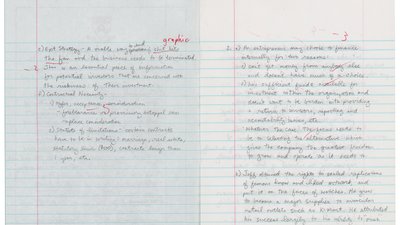 graphic
c) Exit Strategy - A viable way to that lets
the firm end the business needs to be terminated.
-2 Shis is an essential piece of information
for potential investors that are concerned with
the riskiness of their investment.
d) Contractual Necessity -
i) Offer, acceptance, consideration
- forbearance or promissory estoppel can
replace consideration
2) Statute of limitations - certain contracts
have to be in writing: marriage, real estate,
contracts longer than
1 year, etc.
-3
2. a) An entrepreneur may choose to finance
internally for two reasons:
1) can't get money from anyplace else
and doesn't have much of a choice
2) has sufficient funds available for
investment within the organization and
doesn't want to be burden with providing
a return to investors, reporting and
accountability issues, etc.
Whatever the case, the business needs to
be
gives the company the greatest freedom
to grow and operate as it needs to
b) Jeff obtained the rights to sealed replications
of famous known and liked artwork, and
put it on the faces of watches. He grew
to become a major supplier to
retail outlets such as K-Mart. He attributed
his success largely to his ability to push